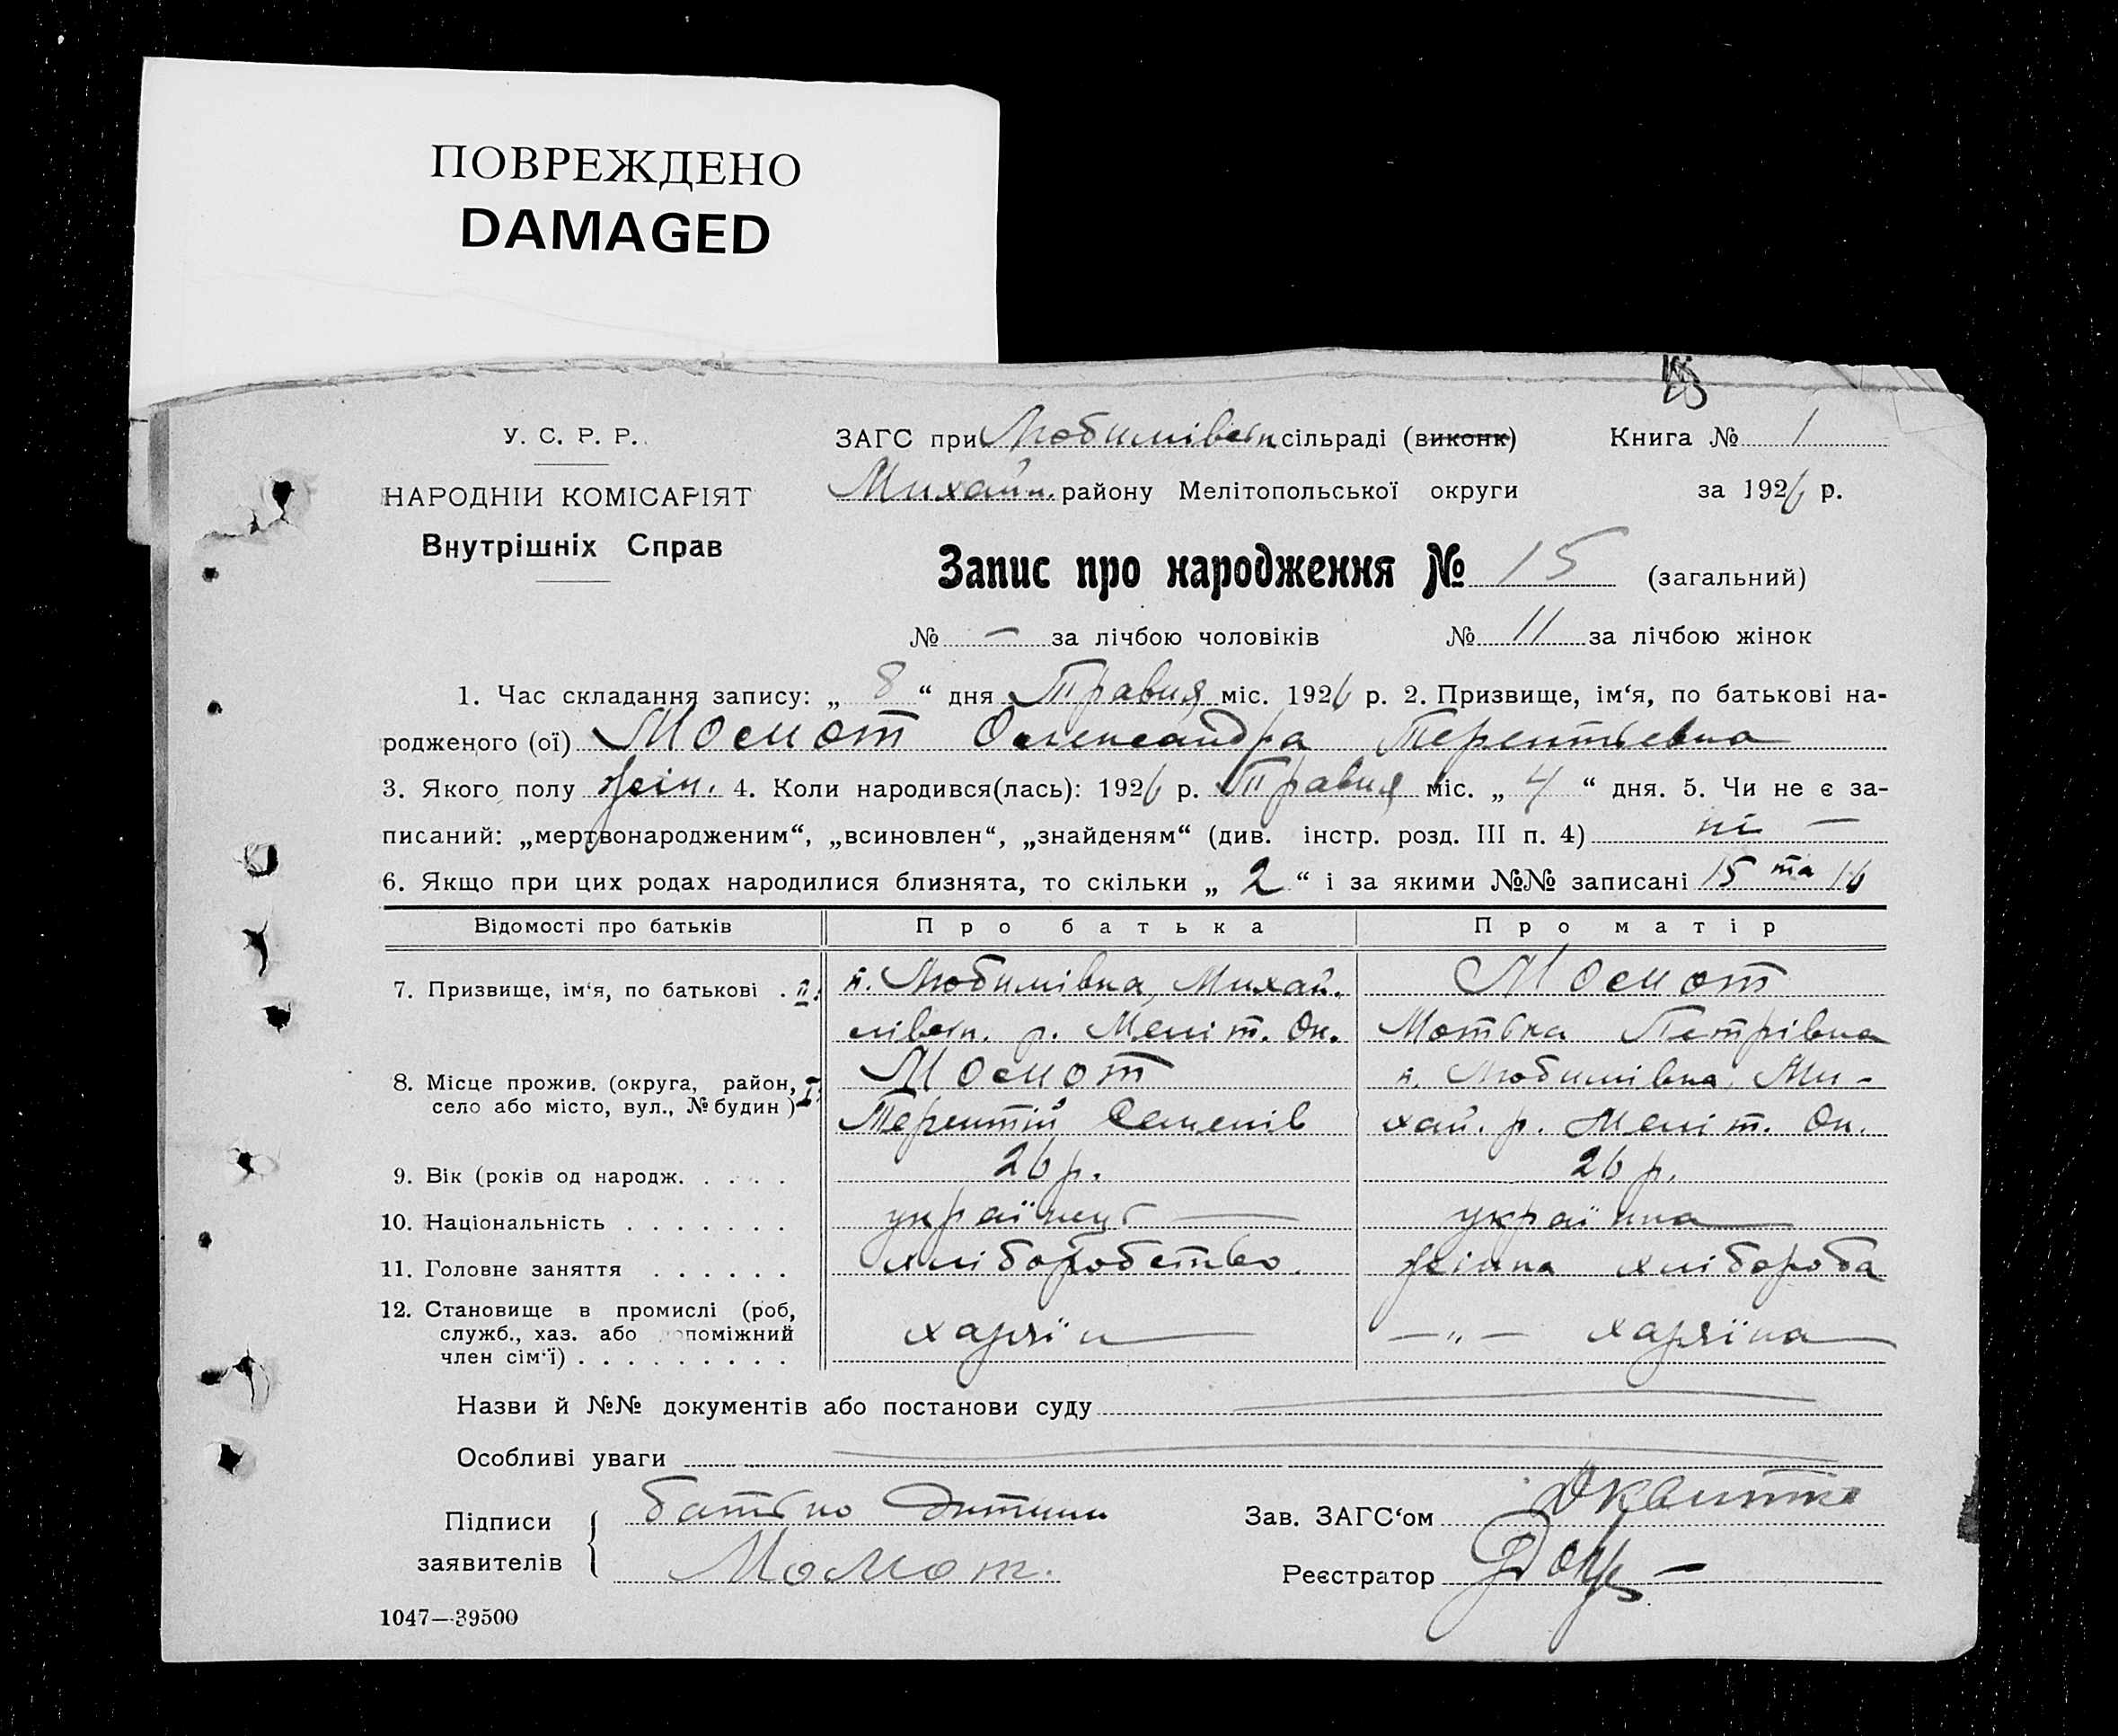 ПОВРЕЖДЕНО
DAMAGED
У. С. Р. Р.
НАРОДНІЙ КОМІСАРІЯТ
Внутрішніх Справ
ЗАГС при Любимівськ сільраді (виконк) Книга № 1
Михайл. району Мелітопольської округи за 1926 р.
Запис про народження № 15 (загальний)
№ — за лічбою чоловіків № 11 за лічбою жінок
1. Час складання запису: „ 8 “ дня Травня міс. 1926 р. 2. Призвище, ім‘я, по батькові на-
родженого (ої) Момот Олександра Терентьевна
3. Якого полу жін. 4. Коли народився(лась): 1926 р. Травня міс. „ 4 “ дня. 5. Чи не є за-
писаний: „мертвонародженим“, „всиновлен“, „знайденям“ (див. інстр. розд. III п. 4) ні —
6. Якщо при цих родах народилися близнята, то скільки „ 2 “ і за якими №№ записані 15 та 16
Відомості про батьків Про батька Про матір
7. Призвище, ім‘я, по батькові . II. с. Любимівка, Михай- Момот
лівськ. р. Меліт. Ок. Мотька Петрівна
8. Місце прожив. (округа, район, I. Момот с. Любимівка Ми-
село або місто, вул., № будин ) Терентій Семенів хай. р. Меліт. Ок.
9. Вік (років од народж. . . . . 26 р. 26 р.
10. Національність . . . . . . . українець — українка —
11. Головне заняття . . . . . . хліборобство. жінка хлібороба
12. Становище в промислі (роб,
служб., хаз. або допоміжний хазяїн — — „ — хазяїка —
член сім‘ї) . . . . . . . . .
Назви й №№ документів або постанови суду
Особливі уваги
Підписи батько дитини Зав. ЗАГС‘ом
заявителів Момот. Реєстратор
1047—39500